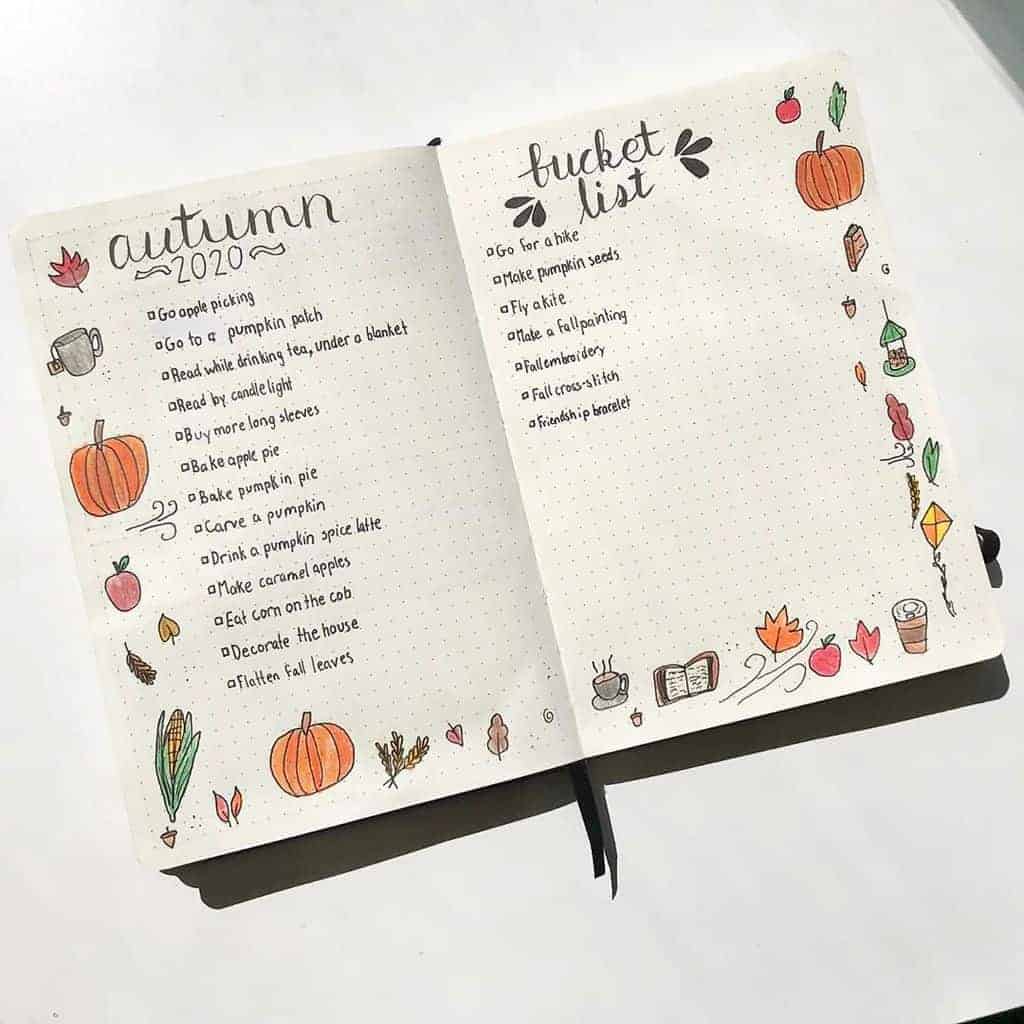 autumn
2020
Go apple picking
Go to a pumpkin patch
Read while drinking tea, under a blanket
Read by candle light
Buy more long sleeves
Bake apple pie
Bake pumpkin pie
Carve a pumpkin
Drink a pumpkin spice latte
Make caramel apples
Eat corn on the cob
Decorate the house
Flatten fall leaves
bucket
list
Go for a hike
Make pumpkin seeds
Fly a kite
Make a fall painting
Fall embroidery
Fall cross-stitch
Friendship bracelet